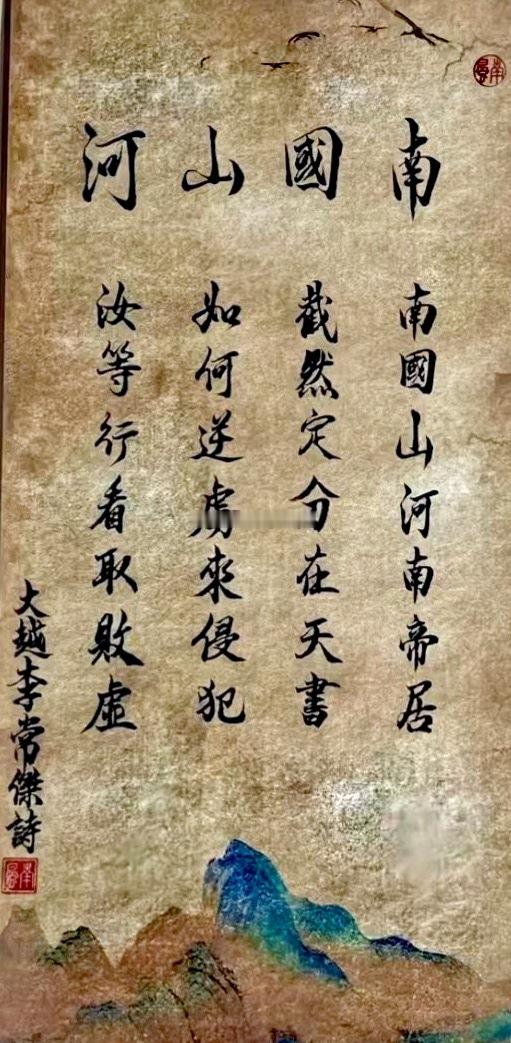 南國山河
南國山河南帝居
截然定分在天書
如何逆虜來侵犯
汝等行看取敗虛
大越李常傑詩